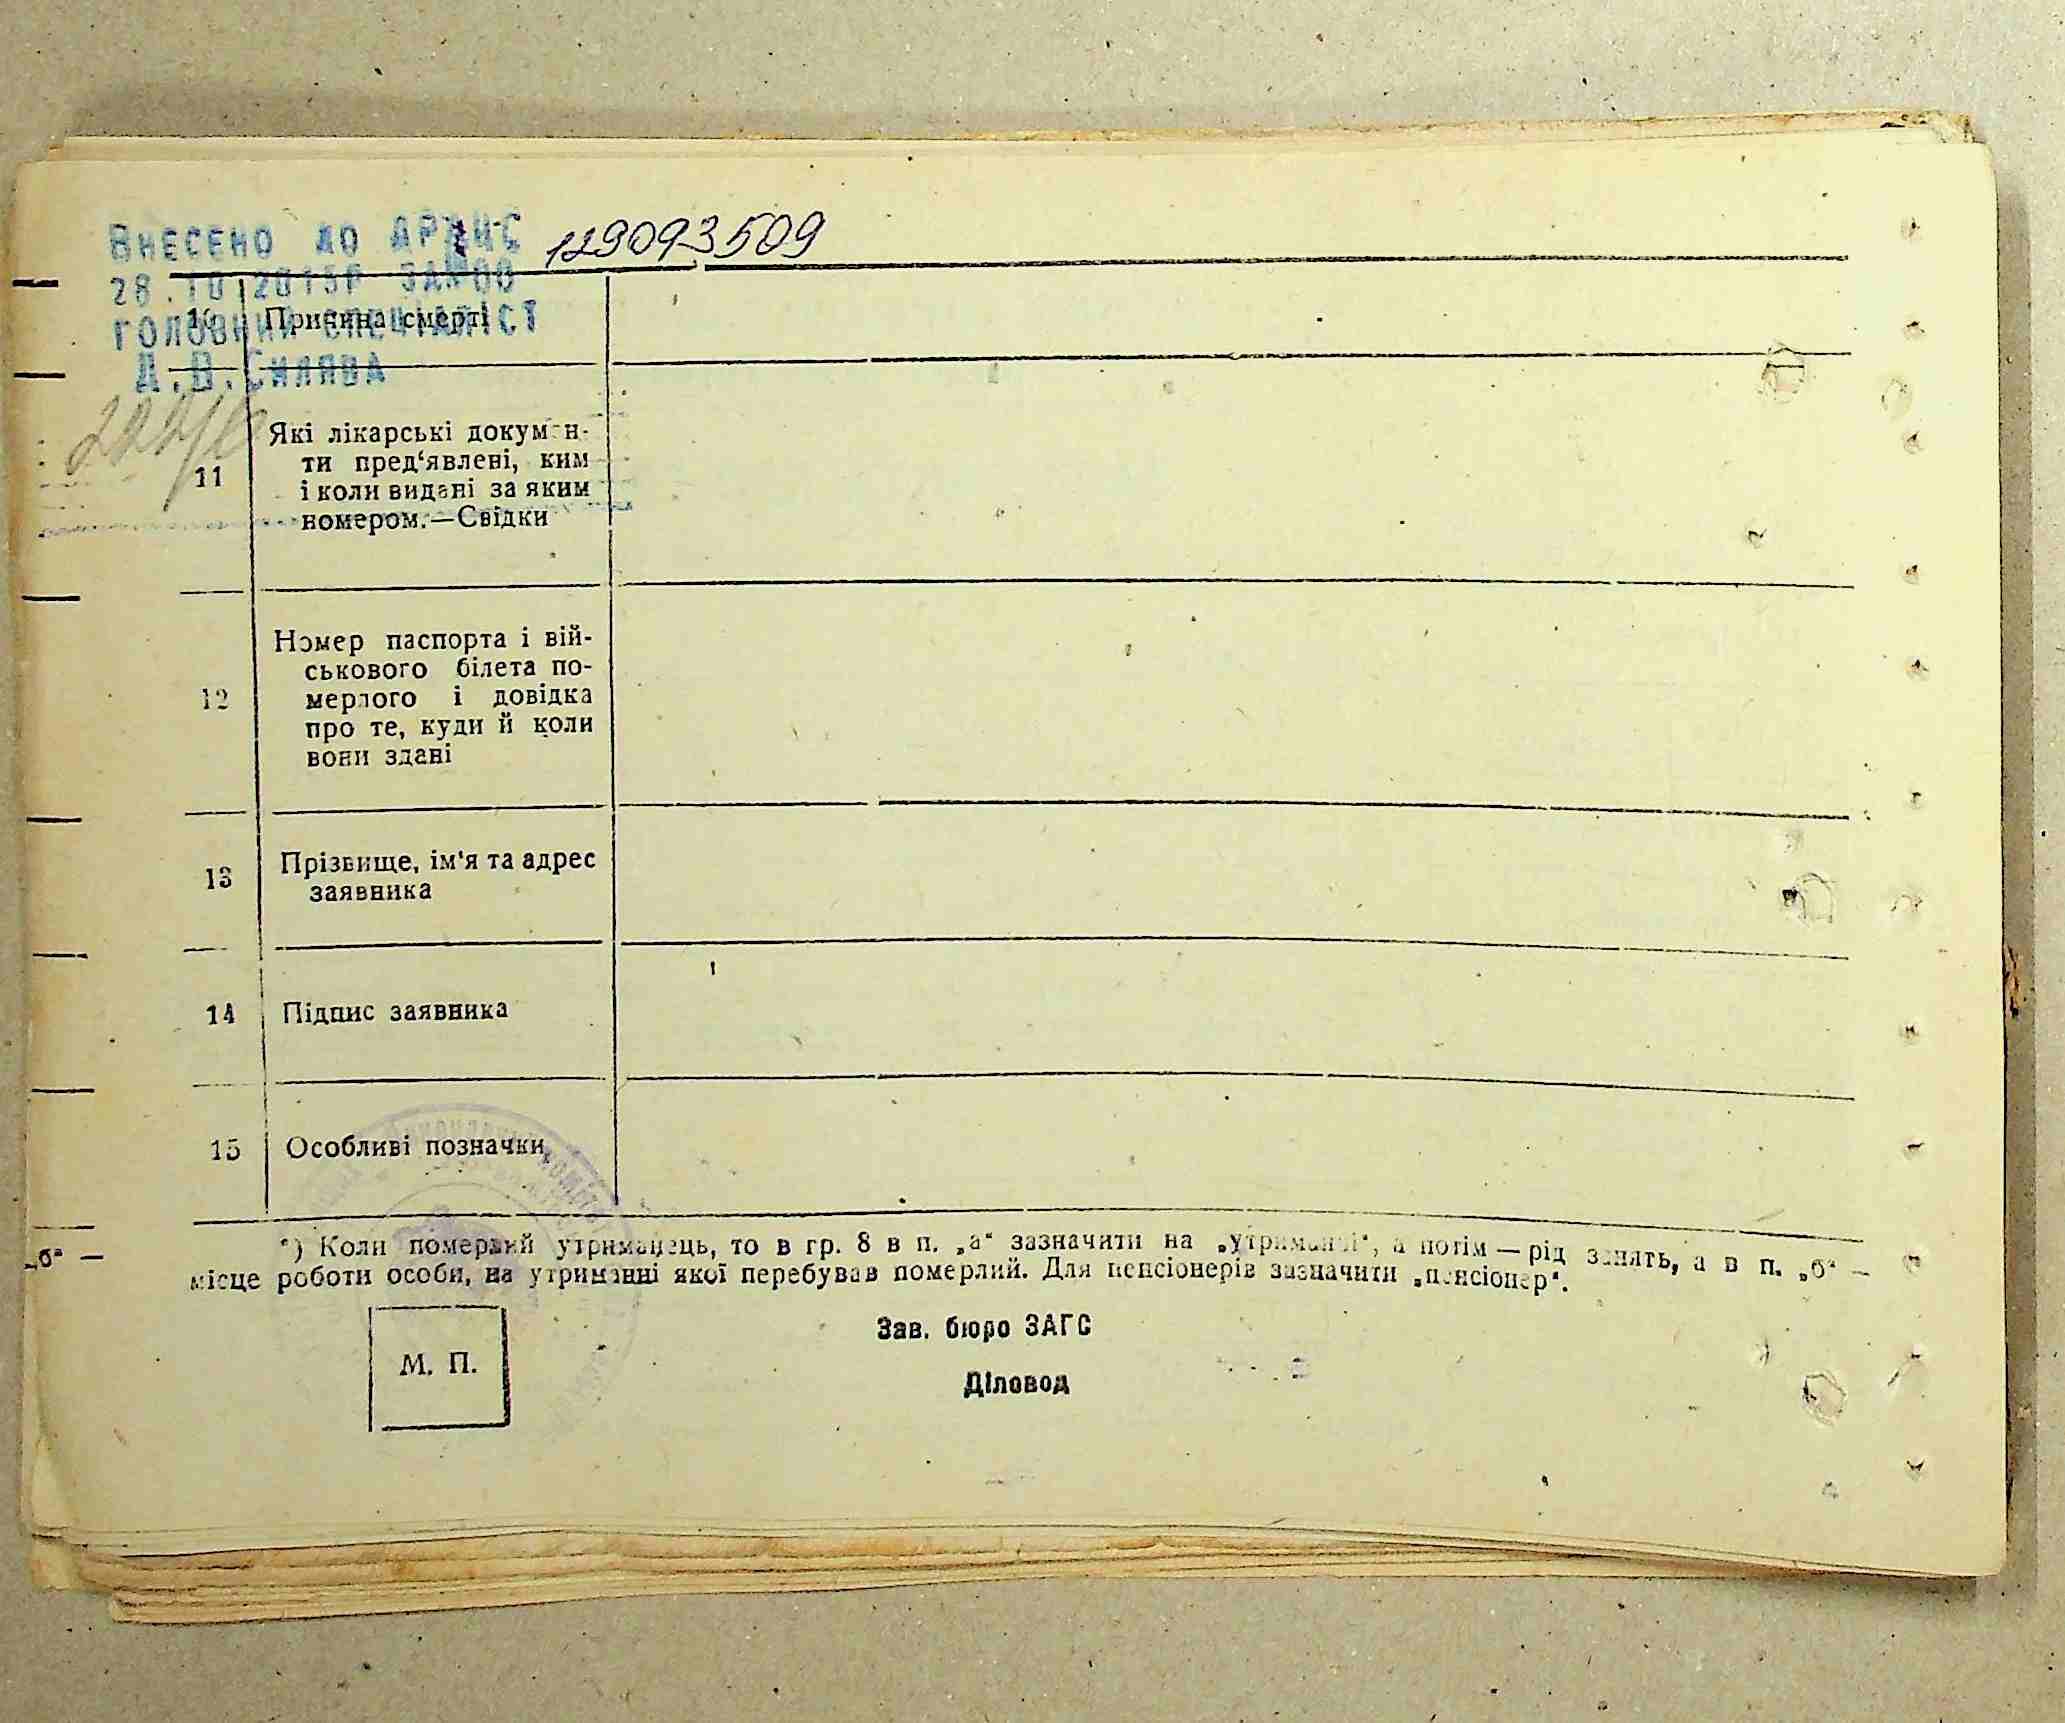 Внесено до ДРАЦС 129093509
28.10.2015р за №00
головний спеціаліст
Д.В.Силява
10 Причина смерті
11 Які лікарські докумен-
ти пред‘явлені, ким
і коли видані за яким
номером.—Свідки
12 Номер паспорта і вій-
ськового білета по-
мерлого і довідка
про те, куди й коли
вони здані
13 Прізвище, ім‘я та адрес
заявника
14 Підпис заявника
15 Особливі позначки
*) Коли померлий утриманець, то в гр. 8 в п. „а“ зазначити на „утриманні“, а потім — рід занять, а в п. „б“ —
місце роботи особи, на утриманні якої перебував померлий. Для пенсіонерів зазначити „пенсіонер“.
„б“ —
Зав. бюро ЗАГС
М. П.
Діловод